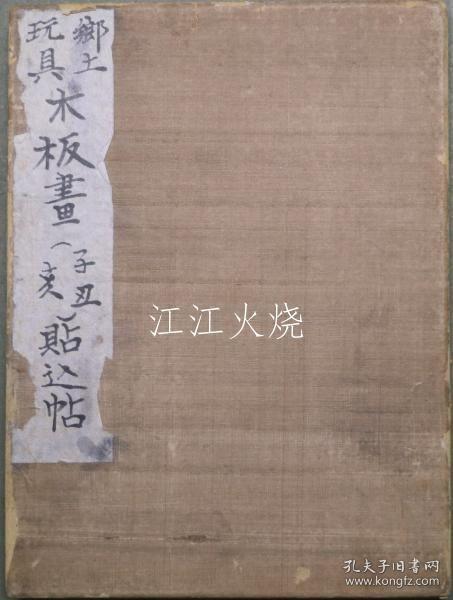 鄉土
玩具
木板畫
（子丑
亥）
貼込帖
江江火烧
孔夫子旧书网
www.kongfz.com